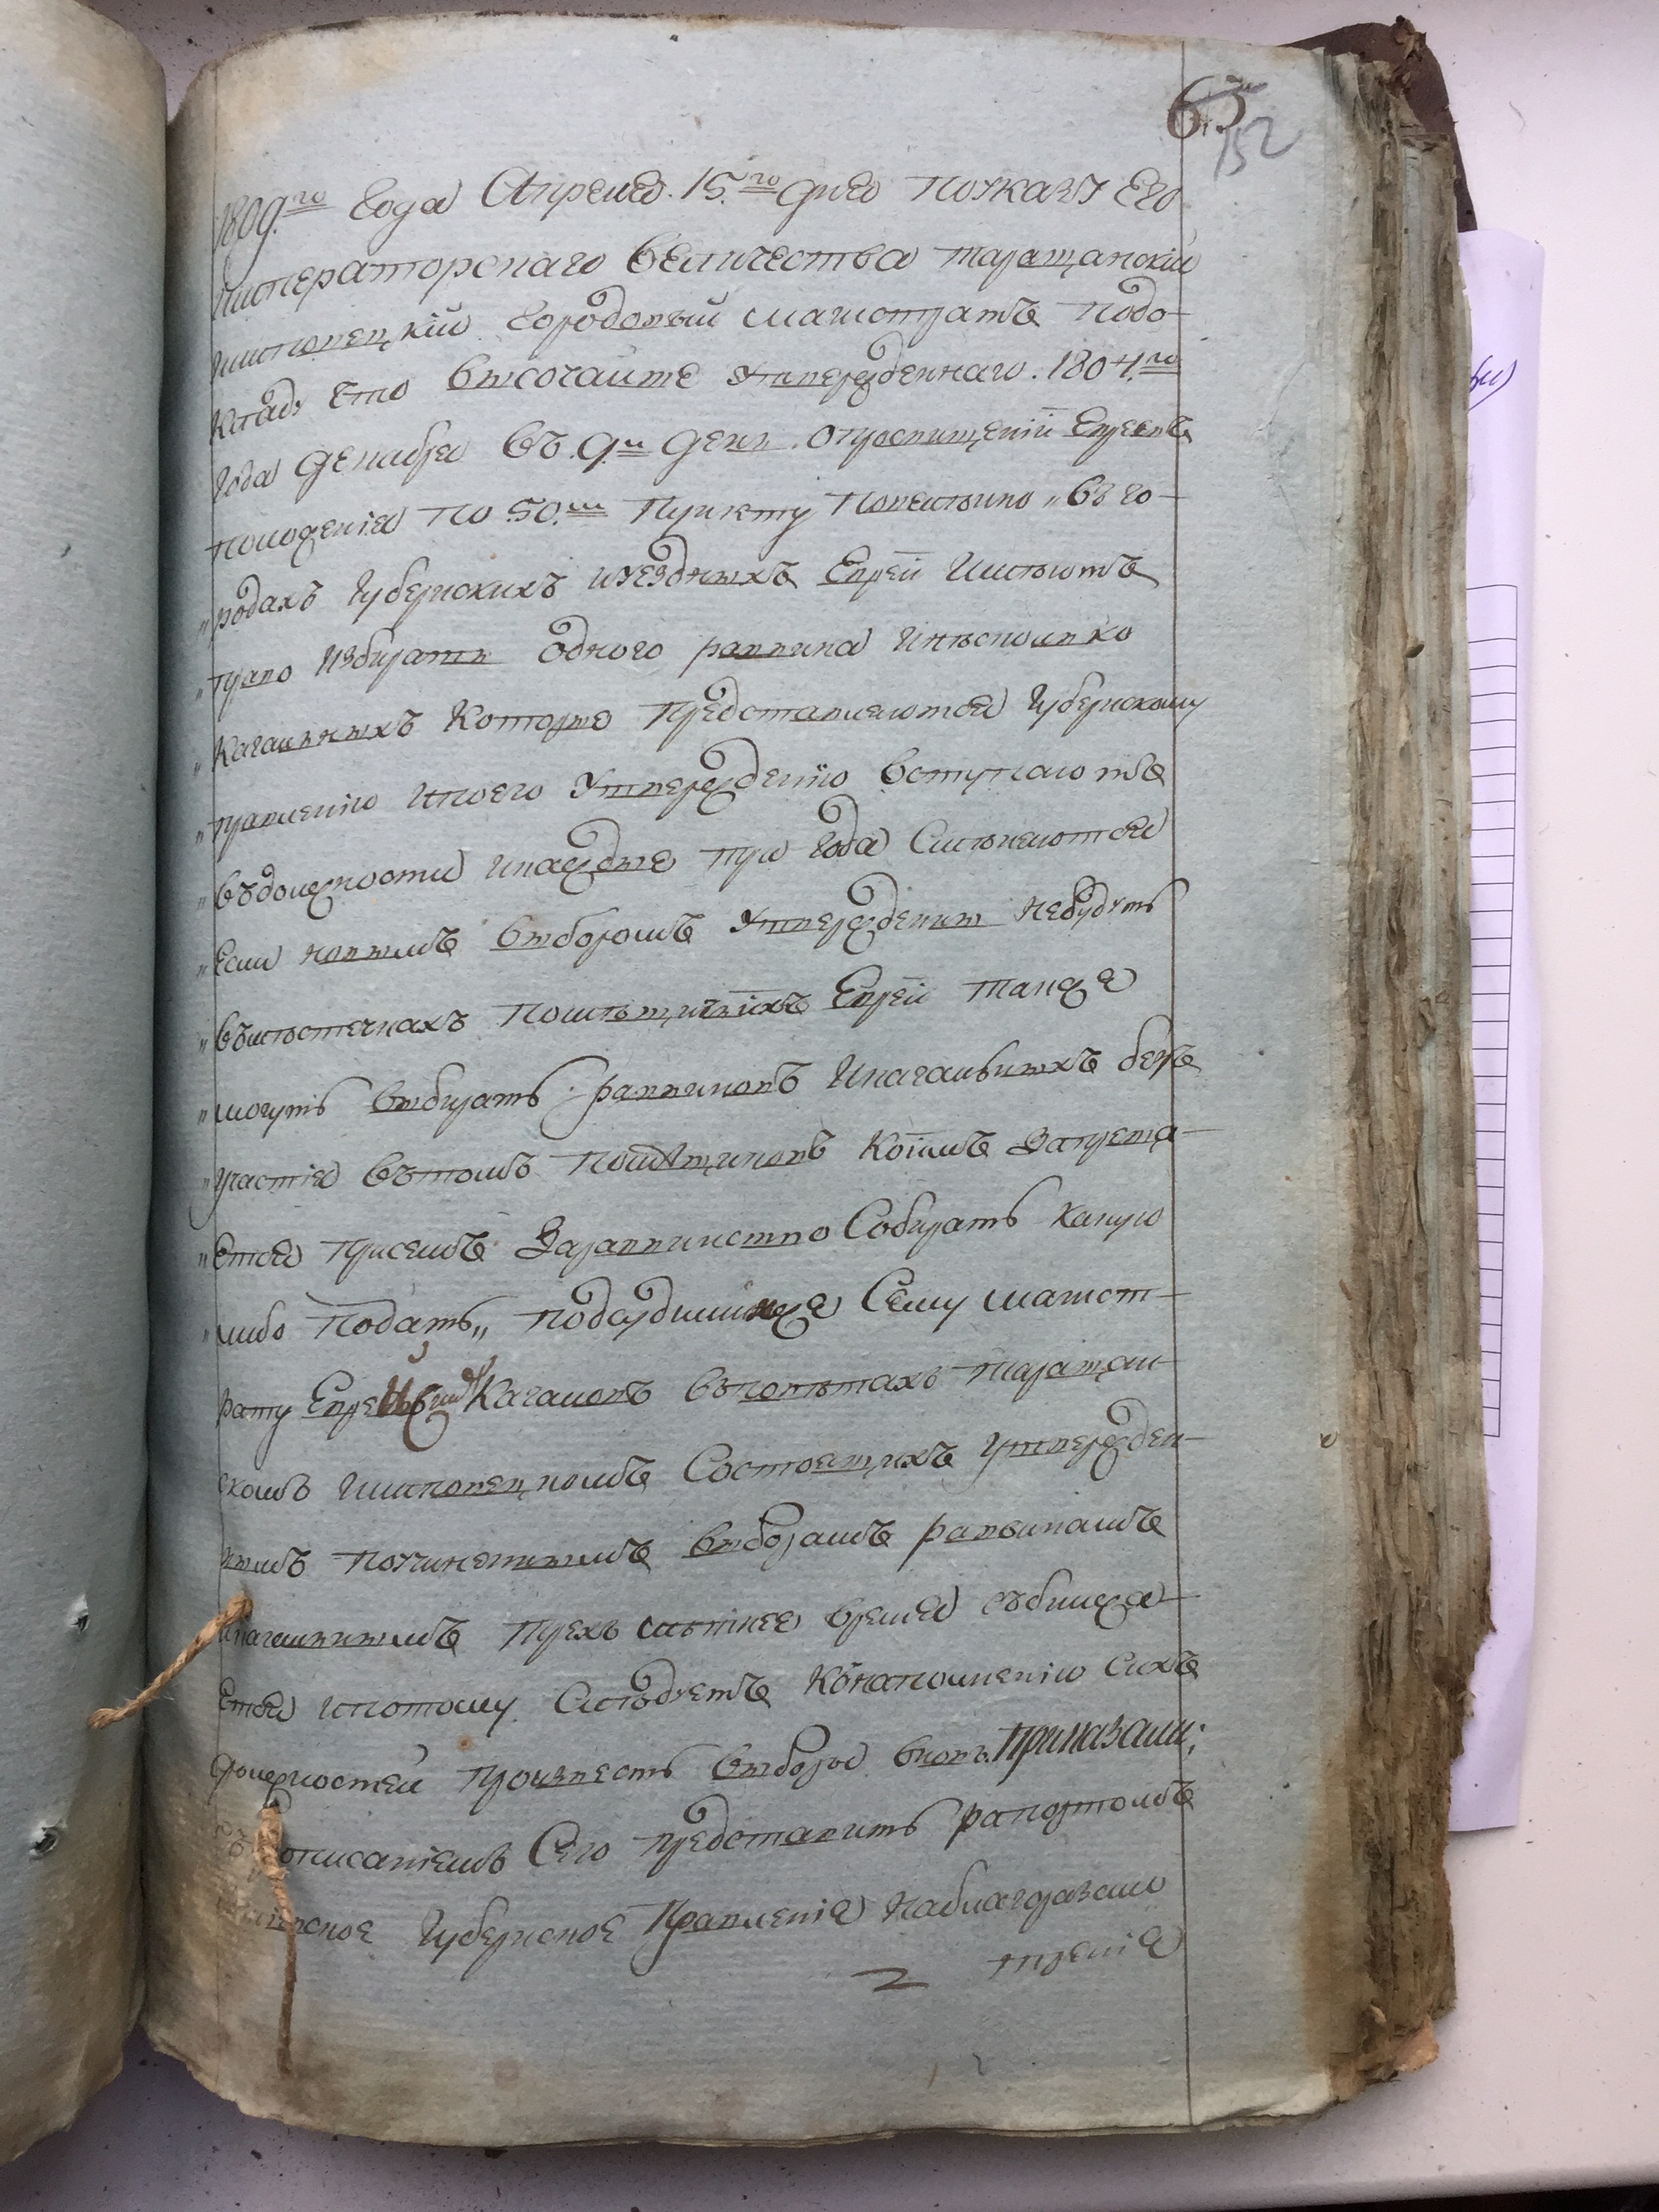 65
152
1809.го Года Апреля 15.го дня поуказу Его
Императорскаго Величества таращанский
и липовецкий городовый магистратъ подо
кладу Его высочайше утвержденнаго 1804.го
года декабря въ 9.й день о устроении Евреевъ
положения по 50.му пункту повелѣно „въ го-
„родахъ губернскихъ и уездныхъ Евреи имѣютъ
„право избирать одного раввина и нѣсколько
„кагальныхъ которые представляются губернскому
„правлению и по его утверждению вступаютъ
„въ должности и каждые три года смѣняются
„если новымъ выборомъ утверждены небудутъ
„въ мѣстечкахъ помѣщичьихъ Евреи также
„могутъ выбирать раввиновъ и кагальныхъ безъ
„участия въ томъ помѣщиковъ коимъ запреща-
„ется присемъ за раввинство собирать какую
„либо подать„ подсудимых же сему магист-
рату Еврейскихъ кагаловъ въ повѣтахъ таращан-
скомъ и липовецкомъ состоящихъ утвержден-
нымъ по учиненнымъ выборамъ раввинамъ
и кагальнымъ трехъ лѣтнее время сближа-
ется и потому слѣдуетъ к наполнению сихъ
должностей произвесть выборы вновь. Приказали;
съ прописаниемъ сего представить рапортомъ
губернское правление на благоразсмо
трение